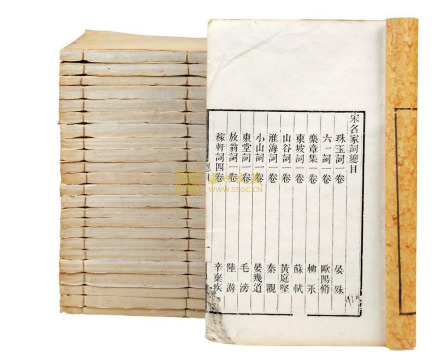 宋名家詞總目
珠玉詞一卷 晏殊
六一詞一卷 歐陽脩
樂章集一卷 柳永
東坡詞一卷 蘇軾
山谷詞一卷 黃庭堅
淮海詞一卷 秦觀
小山詞一卷 晏幾道
東堂詞一卷 毛滂
放翁詞一卷 陸游
稼軒詞四卷 辛棄疾
WWW.SSSC.CN